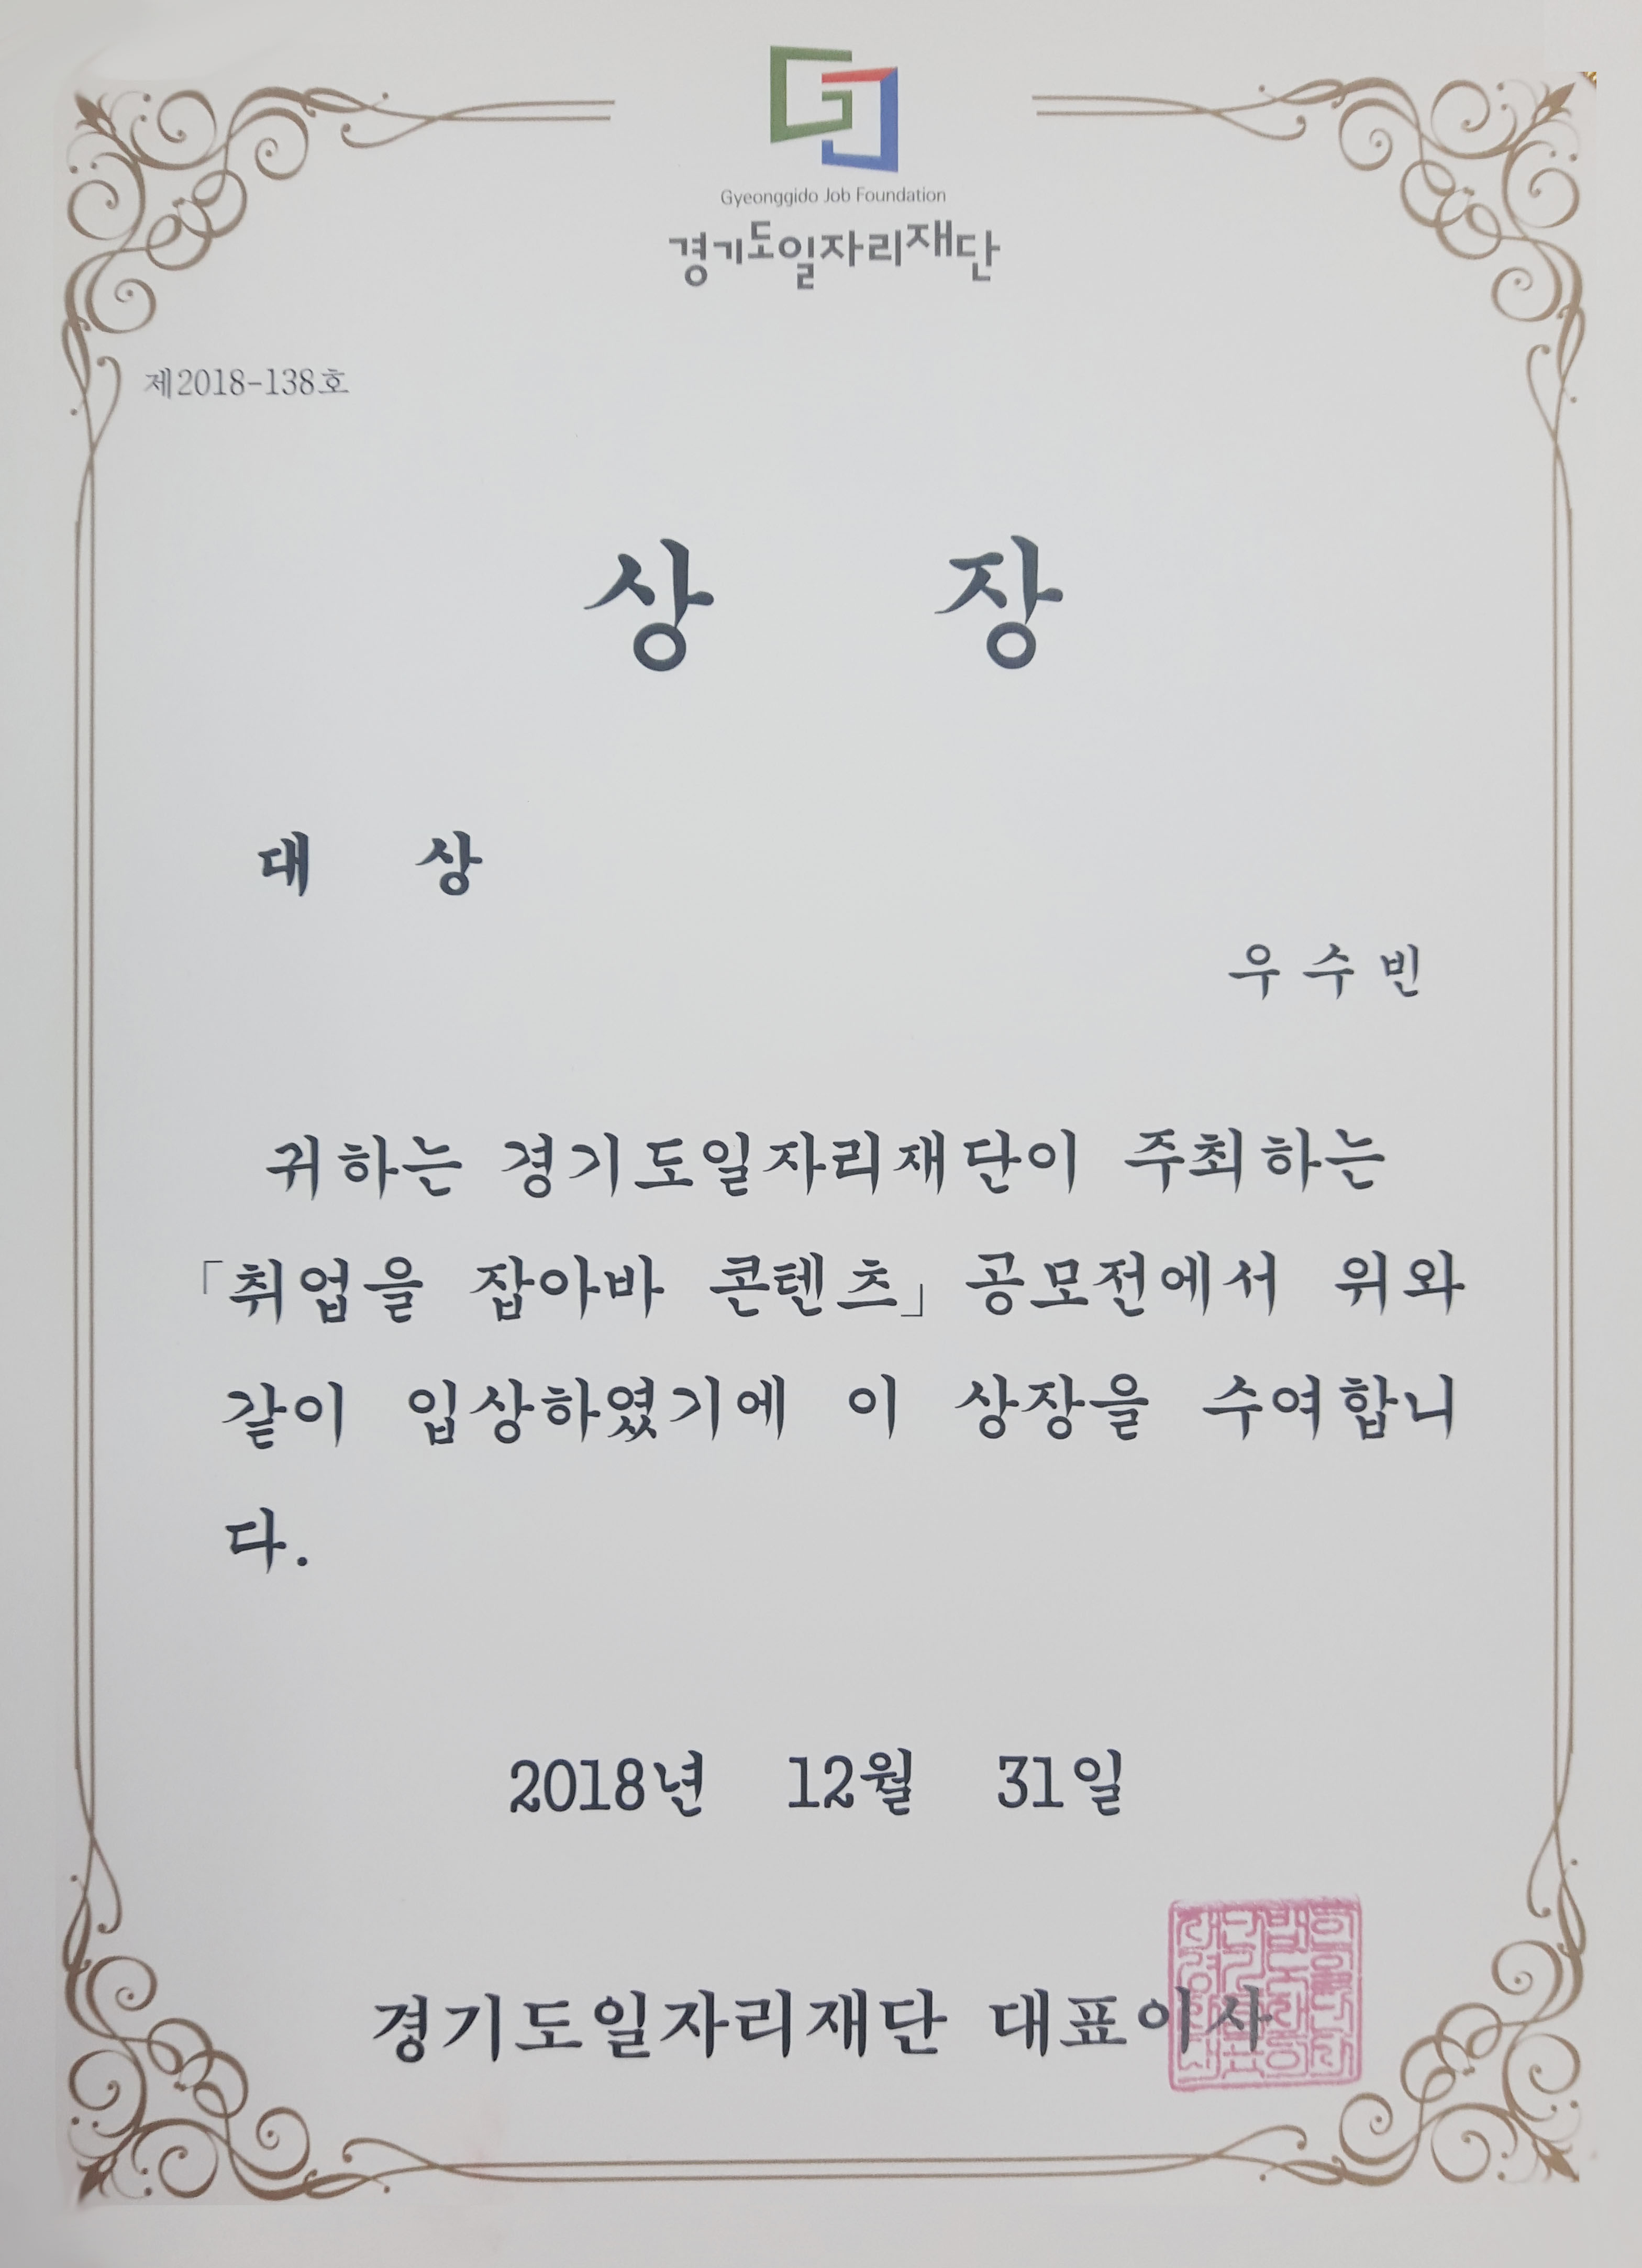 Gyeonggido Job Foundation
경기도일자리재단
제2018-138호
상 장
대 상
우수빈
귀하는 경기도일자리재단이 주최하는
「취업을 잡아바 콘텐츠」 공모전에서 위와
같이 입상하였기에 이 상장을 수여합니
다.
2018년 12월 31일
경기도일자리재단 대표이사